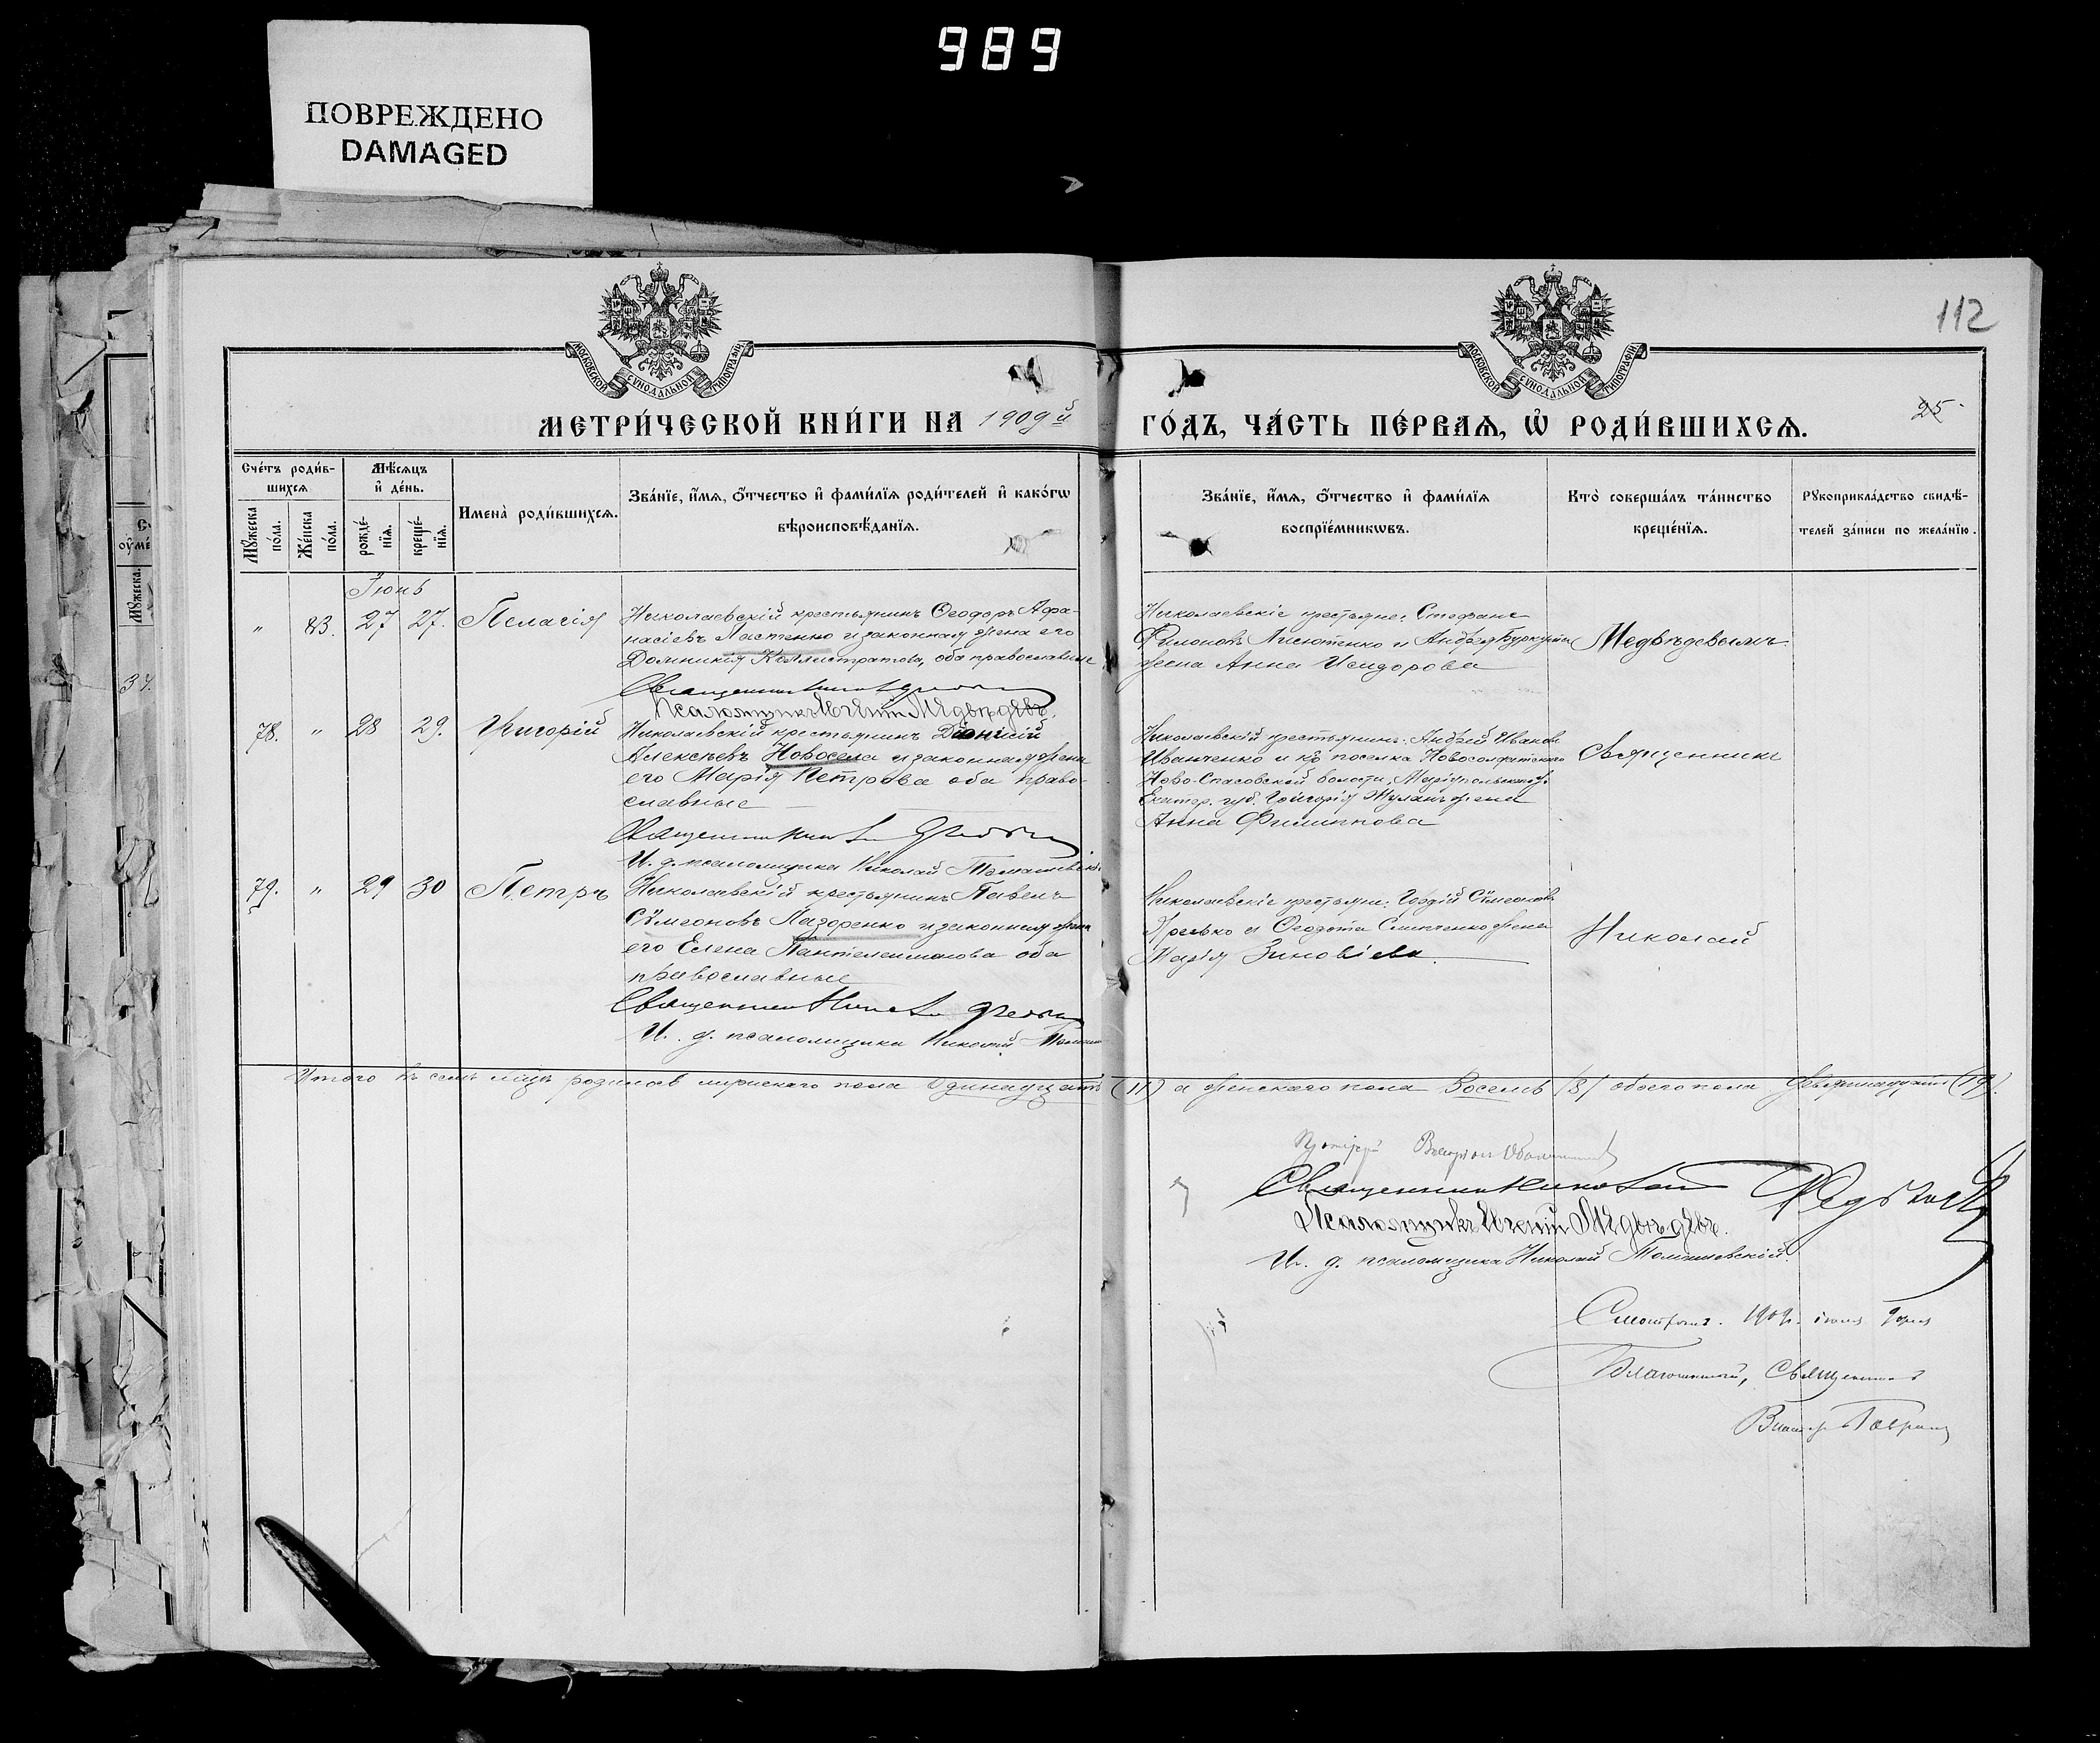 989
ПОВРЕЖДЕНО
DAMAGED
112
МОСКОВСКОЙ СѴНОДАЛЬНОЙ ТИПОГРАФІИ
МОСКОВСКОЙ СѴНОДАЛЬНОЙ ТИПОГРАФІИ
МЕТРИ́ЧЕСКОЙ КНИ́ГИ НА 1909й ГО́ДЪ, ЧА́СТЬ ПЕ́РВАѦ, Ѡ҆ РОДИ́ВШИХСѦ.
25
Сче́тъ роди́в-
шихсѧ
Мꙋ́жеска по́ла.
Же́нска по́ла.
Мѣ́сѧцъ
и҆ де́нь.
рожде́-
нїѧ.
креще́-
нїѧ.
И҆мена̀ роди́вшихсѧ.
Зва́нїе, и҆́мѧ, ѻ҆́тчество и҆ фами́лїѧ роди́телей и҆ како́гѡ
вѣроисповѣ́данїѧ.
Зва́нїе, и҆́мѧ, ѻ҆́тчество и҆ фами́лїѧ
воспрїе́мникѡвъ.
Кто̀ соверша́лъ та́инство
креще́нїѧ.
Рꙋкоприкла́дство свидѣ́-
телей за́писи по жела́нїю.
Іюнь
" 83. 27 27. Пелагія
Николаевскій крестьянинъ Ѳеодоръ Афа-
насіевъ Ластенко и законная жена его
Домникія Каллистратова, оба православные
Священникъ
Псаломщикъ Евгеній Медвѣдевъ.
Николаевскіе крестьяне: Стефанъ
Филоновъ Лисютенко и Андрея
жена Анна Исидорова
Медвѣдевымъ
78. " 28 29. Григорій
Николаевскій крестьянинъ Діонисій
Алексѣевъ Новосела и законная жена
его Марія Петрова оба право-
славные
Священникъ
И. д. псаломщика Николай Томашевскій
Николаевскій крестьянинъ: Андрей Ивановъ
Иванченко и изъ поселка Новосолдатскаго
Ново-Спасовской волости, Маріупольскаго у.
Екатер. губ. Григорія жена
Анна Филиппова
Священникъ
79. " 29 30 Петръ
Николаевскій крестьянинъ Павелъ
Сѵмеоновъ Лазоренко и законная жена
его Елена Пантелеимонова оба
православные
Священникъ
И. д. псаломщика Николай
Николаевскіе крестьяне: Гордій Сѵмеоновъ
и Ѳеодота жена
Марія Зиновіева.
Николай
Итого въ семъ мѣсяцѣ родилось мужескаго пола Одинадцать (11) а женскаго пола Восемь (8) обоего пола Девятнадцать (19).
Протоіерей
Священникъ Николай
Псаломщикъ Евгеній Медвѣдевъ.
И. д. псаломщика Николай Томашевскій.
Смотрѣлъ. 1909 г. іюля 9 дня
Благочинный, Священникъ